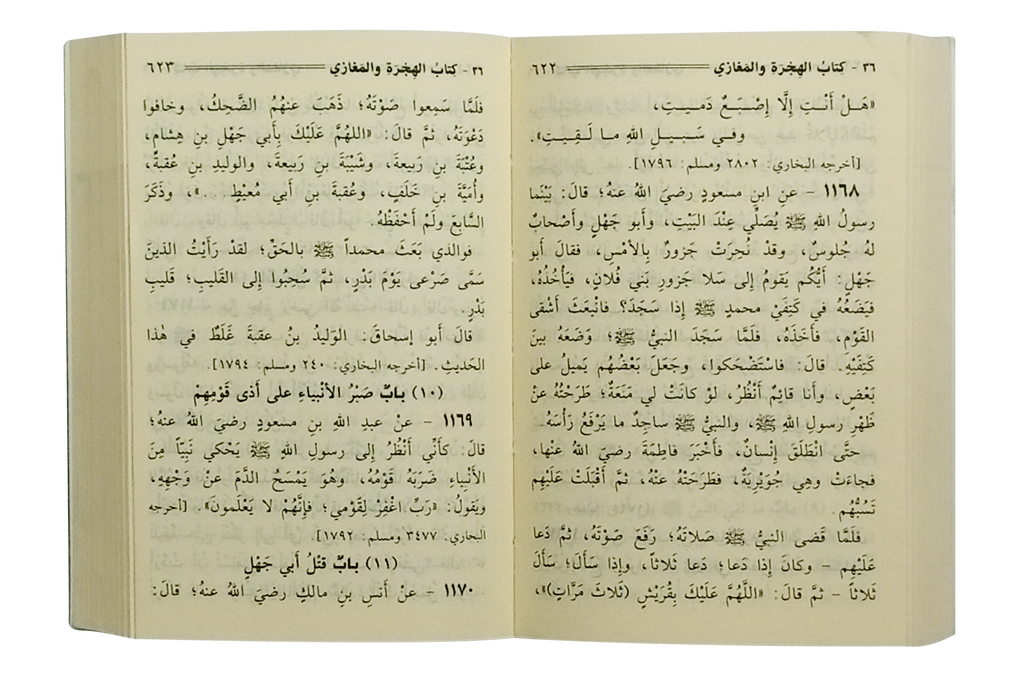 ٣٦ - كِتابُ الهِجْرَةِ والمَغازي ٦٢٢
«هَـلْ أَنْـتِ إِلَّا إِصْـبَـعٌ دَمـيـتِ،
وفـي سَـبـيـلِ اللهِ مـا لَـقِـيـتِ».
[أخرجه البخاري: ٢٨٠٢ ومسلم: ١٧٩٦].
١١٦٨ - عنِ ابنِ مسعودٍ رضيَ اللهُ عنهُ؛ قالَ: بَيْنَما
رسولُ اللهِ ﷺ يُصَلِّي عِنْدَ البَيْتِ، وأبو جَهْلٍ وأصْحابٌ
لهُ جُلوسٌ، وقدْ نُحِرَتْ جَزورٌ بِالأَمْسِ، فقالَ أبو
جَهْلٍ: أيُّكُم يَقومُ إلى سَلا جَزورِ بَني فُلانٍ، فيَأْخُذُهُ،
فيَضَعُهُ في كَتِفَيْ محمدٍ ﷺ إذا سَجَدَ؟ فانْبَعَثَ أشْقى
القَوْمِ، فأخَذَهُ، فلَمَّا سَجَدَ النبيُّ ﷺ؛ وَضَعَهُ بينَ
كَتِفَيْهِ. قالَ: فاسْتَضْحَكوا، وجَعَلَ بَعْضُهُم يَميلُ على
بَعْضٍ، وأنا قائِمٌ أنْظُرُ، لوْ كانَتْ لي مَنَعَةٌ؛ طَرَحْتُهُ عنْ
ظَهْرِ رسولِ اللهِ ﷺ، والنبيُّ ﷺ ساجِدٌ ما يَرْفَعُ رَأْسَهُ.
حتَّى انْطَلَقَ إنْسانٌ، فأخْبَرَ فاطِمَةَ رضيَ اللهُ عنها،
فجاءَتْ وهِي جُوَيْرِيَةٌ، فطَرَحَتْهُ عنْهُ، ثمَّ أقْبَلَتْ عَلَيْهِم
تَسُبُّهُم.
فلَمَّا قَضى النبيُّ ﷺ صَلاتَهُ؛ رَفَعَ صَوْتَهُ، ثمَّ دَعا
عَلَيْهِم - وكانَ إذا دَعا؛ دَعا ثَلاثاً، وإذا سَأَلَ؛ سَأَلَ
ثَلاثاً - ثمَّ قالَ: «اللَّهُمَّ عَلَيْكَ بِقُرَيْشٍ (ثَلاثَ مَرَّاتٍ)»،
٣٦ - كِتابُ الهِجْرَةِ والمَغازي ٦٢٣
فلَمَّا سَمِعوا صَوْتَهُ؛ ذَهَبَ عنهُمُ الضَّحِكُ، وخافوا
دَعْوَتَهُ، ثمَّ قالَ: «اللهُمَّ عَلَيْكَ بِأبي جَهْلِ بنِ هِشام،
وعُتْبَةَ بنِ رَبيعةَ، وشَيْبَةَ بنِ رَبيعةَ، والوليدِ بنِ عُقبةَ،
وأُمَيَّةَ بنِ خَلَفٍ، وعُقبةَ بنِ أبي مُعيْطٍ...»، وذَكَرَ
السَّابِعَ ولَمْ أحْفَظْهُ.
فوالذي بَعَثَ محمداً ﷺ بالحَقِّ؛ لقدْ رَأَيْتُ الذينَ
سَمَّى صَرْعى يَوْمَ بَدْرٍ، ثمَّ سُحِبُوا إلى القَليبِ؛ قَليبِ
بَدْرٍ.
قالَ أبو إسحاقَ: الوَليدُ بنُ عقبةَ غَلَطٌ في هٰذا
الحَديثِ. [أخرجه البخاري: ٢٤٠ ومسلم: ١٧٩٤].
(١٠) بابٌ صَبْرُ الأنْبياءِ على أذى قَوْمِهِمْ
١١٦٩ - عنْ عبدِ اللهِ بنِ مسعودٍ رضيَ اللهُ عنهُ؛
قالَ: كَأنِّي أنْظُرُ إلى رسولِ اللهِ ﷺ يَحْكي نَبِيّاً مِنَ
الأنْبِياءِ ضَرَبَهُ قَوْمُهُ، وهُوَ يَمْسَحُ الدَّمَ عنْ وَجْهِهِ،
ويَقولُ: «رَبِّ اغْفِرْ لِقَوْمي؛ فإنَّهُمْ لا يَعْلَمونَ». [أخرجه
البخاري: ٣٤٧٧ ومسلم: ١٧٩٢].
(١١) بابٌ قتْلُ أبي جَهْلٍ
١١٧٠ - عنْ أنَسِ بنِ مالكٍ رضيَ اللهُ عنهُ؛ قالَ: